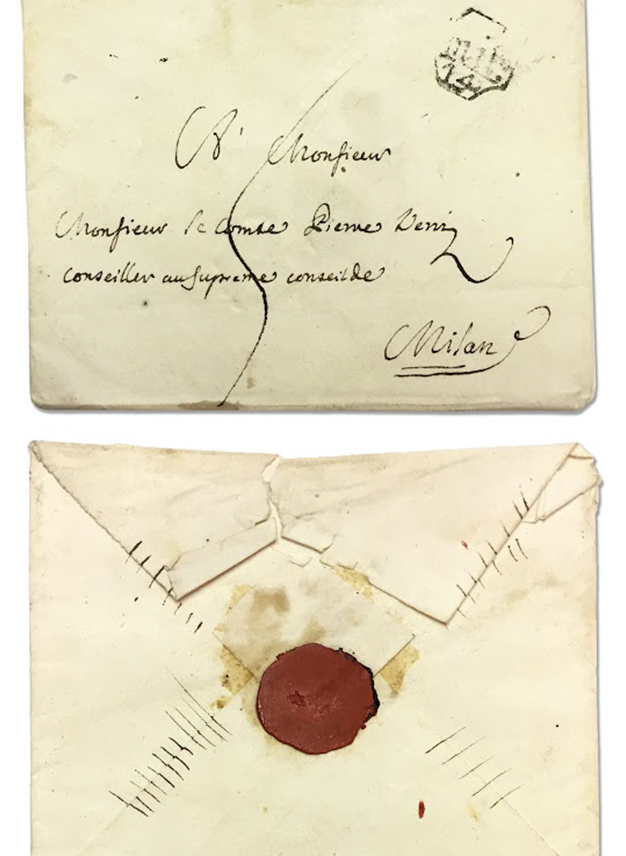 14
A Monsieur
Monsieur le Comte Pierre Verri
conseiller au supreme conseil de
Milan